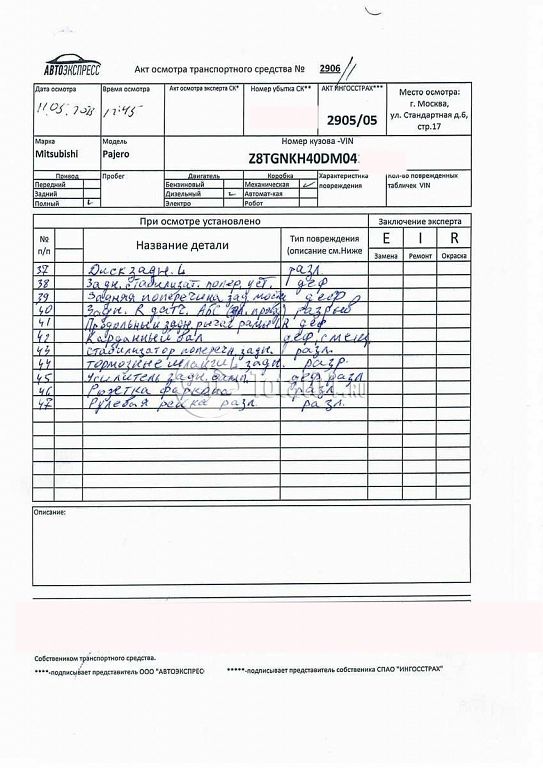 АВТОЭКСПРЕСС
Акт осмотра транспортного средства № 2906/11
Дата осмотра Время осмотра Акт осмотра эксперта СК* Номер убытка СК** АКТ ИНГОССТРАХ*** Место осмотра:
г. Москва,
ул. Стандартная д.6,
стр.17
11.05. 12:45 2905/05
Марка Модель Номер кузова -VIN
Mitsubishi Pajero Z8TGNKH40DM04
Привод Пробег Двигатель Коробка Характеристика
повреждения
кол-во поврежденных
табличек VIN
Передний Бензиновый Механическая
Задний Дизельный Автомат-кая
Полный Электро Робот
При осмотре установлено Заключение эксперта
№
п/п
Название детали Тип повреждения
(описание см.Ниже
E I R
Замена Ремонт Окраска
37 Диск задн. L разл.
38 Задн. стабилизат. попер. уст. деф
39 Задняя поперечина зад. моста деф
40 Задн. R датч. АБС разрыв
41 Продольный задн. рычаг R деф
42 Карданный вал деф, смещ
43 стабилизатор поперечн. задн. разл.
44 тормозные шланги L задн. разр.
45 Усилитель задн. бамп. деф разл
46 Розетка фаркопа разл.
47 Рулевая рейка разл. разл.
Описание:
Собственником транспортного средства.
****-подписывает представитель ООО "АВТОЭКСПРЕС *****-подписывает представитель собственика СПАО "ИНГОССТРАХ"